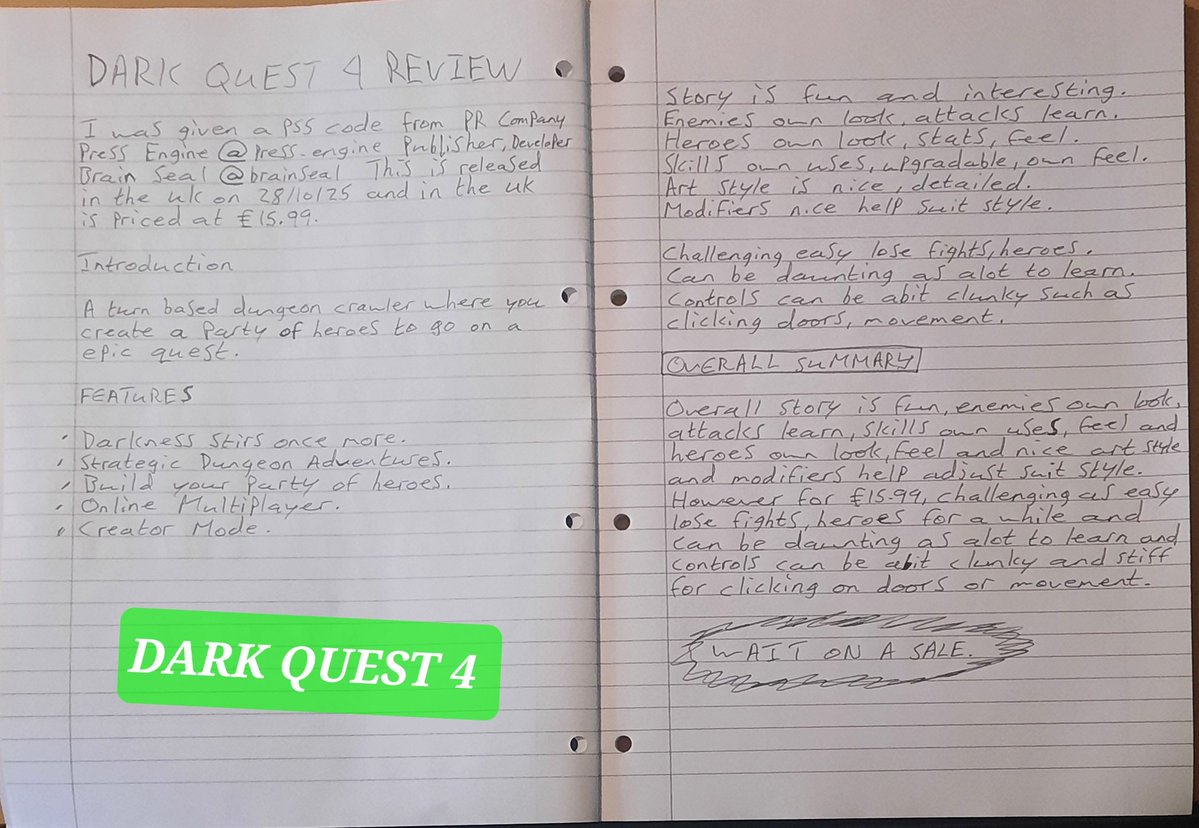 DARK QUEST 4 REVIEW
I was given a PS5 code from PR Company
Press Engine @Press-engine Publisher, Developer
Brain Seal @brainseal This is released
in the uk on 28/10/25 and in the uk
is priced at £15.99.
Introduction
A turn based dungeon crawler where you
create a party of heroes to go on a
epic quest.
FEATURES
· Darkness Stirs once more.
· Strategic Dungeon Adventures.
· Build your Party of heroes.
· Online Multiplayer.
· Creator Mode.
DARK QUEST 4
Story is fun and interesting.
Enemies own look, attacks learn.
Heroes own look, stats, feel.
Skills own uses, upgradable, own feel.
Art style is nice, detailed.
Modifiers nice help suit style.
Challenging easy lose fights, heroes.
Can be daunting as alot to learn.
Controls can be abit clunky such as
clicking doors, movement.
OVERALL SUMMARY
Overall story is fun, enemies own look,
attacks learn, skills own uses, feel and
heroes own look, feel and nice art style
and modifiers help adjust suit style.
However for £15.99, challenging as easy
lose fights, heroes for a while and
can be daunting as alot to learn and
controls can be abit clunky and stiff
for clicking on doors or movement.
WAIT ON A SALE.